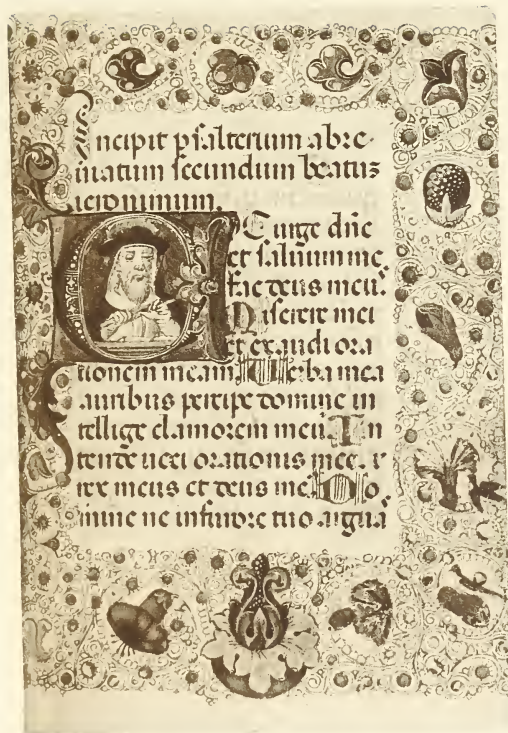 Incipit psalterium abre
uiatum secundum beatus
ieronimum.
Surge dñe
et saluum me
fac deus meus.
Miserere mei
et exaudi ora
tionem meam Verba mea
auribus percipe domine in
tellige clamorem meū In
tende uoci orationis mee. r
rex meus et deus me Do
mine ne in furore tuo argua